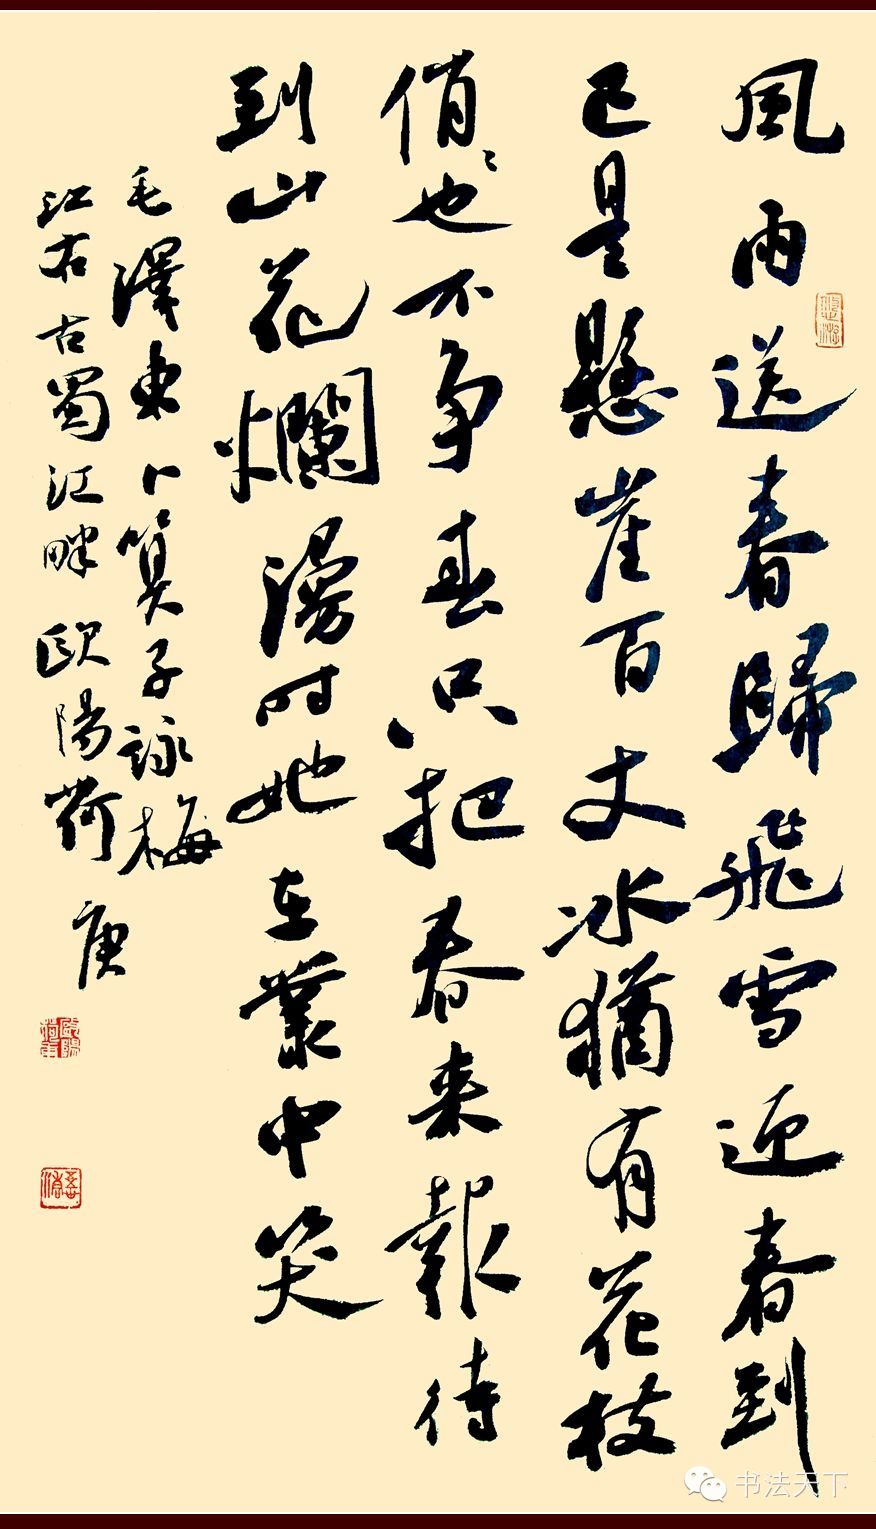 風雨送春歸飛雪迎春到
已是懸崖百丈冰猶有花枝
俏〻也不争春只把春来報待
到山花爛漫时她在叢中笑
毛澤東卜算子詠梅
江右古蜀江畔歐陽荷庚
书法天下